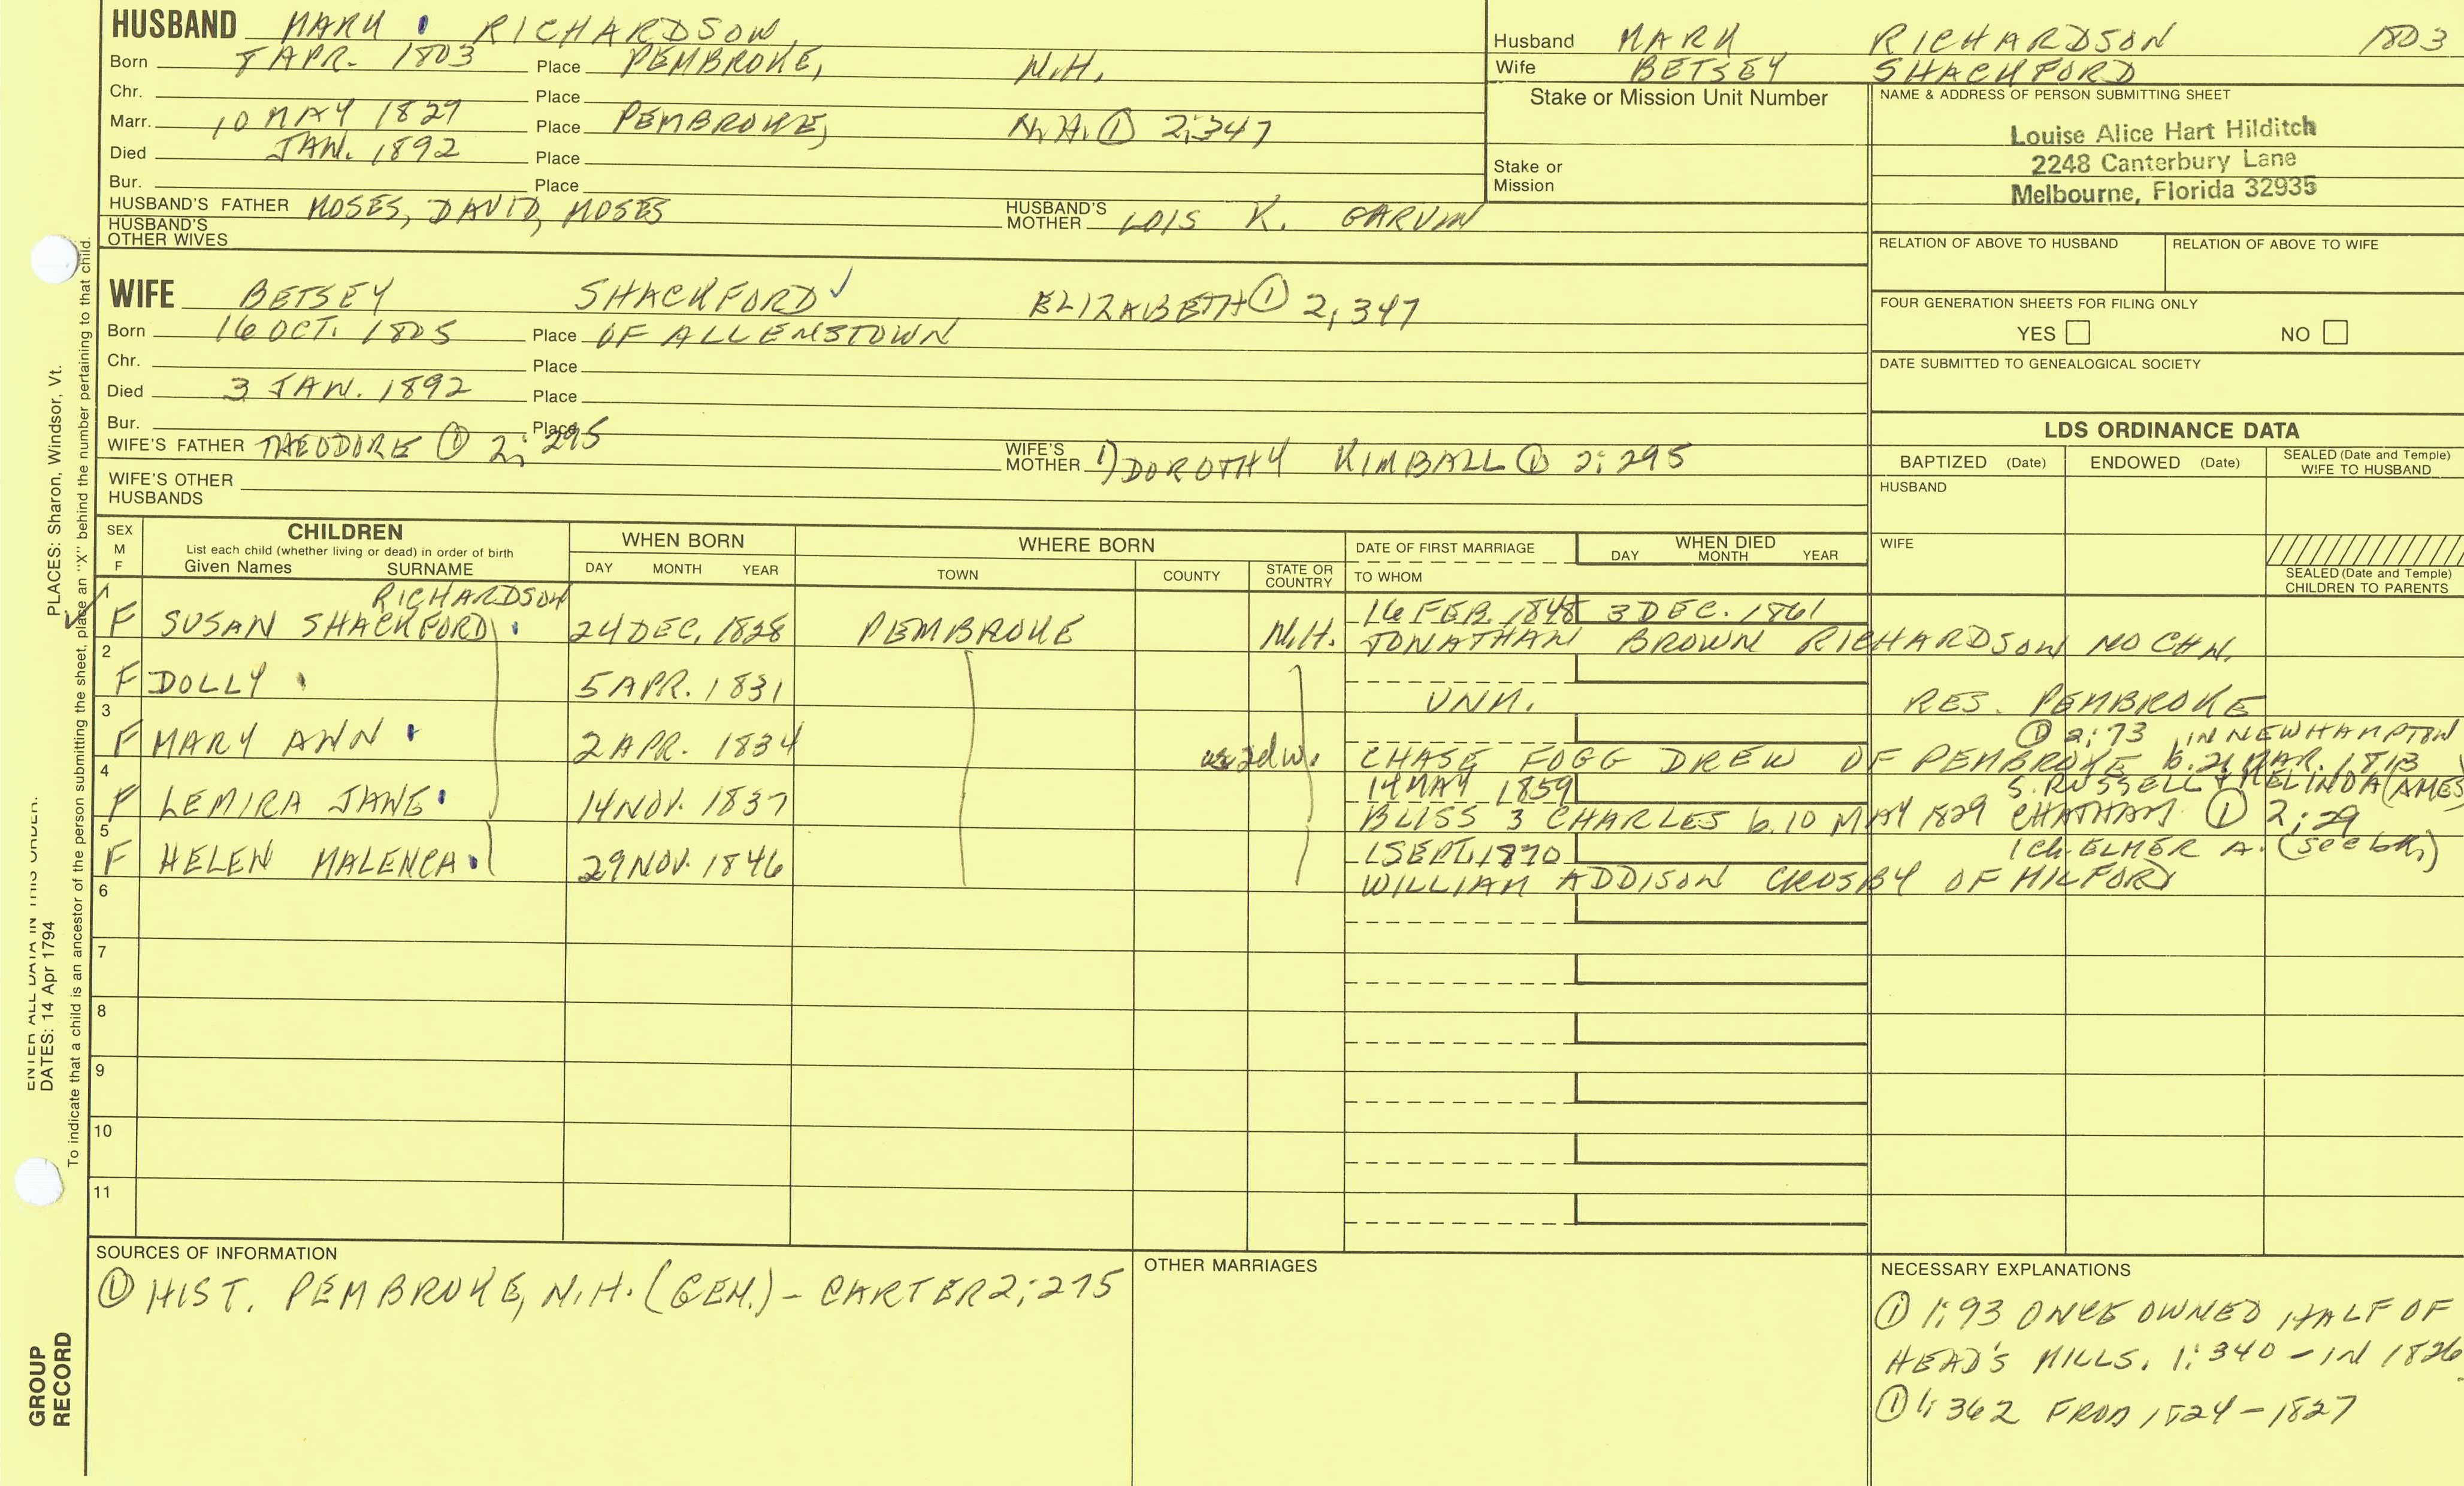 HUSBAND MARK RICHARDSON
Born 8 APR. 1803 Place PEMBROKE, N.H.
Chr. Place
Marr. 10 MAY 1829 Place PEMBROKE, N.H. ① 2:347
Died JAN. 1892 Place
Bur. Place
HUSBAND'S FATHER MOSES, DAVID, MOSES HUSBAND'S MOTHER LOIS K. GARVIN
HUSBAND'S OTHER WIVES
Husband MARK RICHARDSON 1803
Wife BETSEY SHACKFORD
Stake or Mission Unit Number
Stake or Mission
NAME & ADDRESS OF PERSON SUBMITTING SHEET
Louise Alice Hart Hilditch
2248 Canterbury Lane
Melbourne, Florida 32935
RELATION OF ABOVE TO HUSBAND RELATION OF ABOVE TO WIFE
FOUR GENERATION SHEETS FOR FILING ONLY
YES NO
DATE SUBMITTED TO GENEALOGICAL SOCIETY
WIFE BETSEY SHACKFORD ✓ ELIZABETH ① 2,347
Born 16 OCT. 1805 Place OF ALLENSTOWN
Chr. Place
Died 3 JAN. 1892 Place
Bur. Place
WIFE'S FATHER THEODORE ① 2:295 WIFE'S MOTHER 1) DOROTHY KIMBALL ① 2:295
WIFE'S OTHER HUSBANDS
LDS ORDINANCE DATA
BAPTIZED (Date) ENDOWED (Date) SEALED (Date and Temple) WIFE TO HUSBAND
HUSBAND
WIFE
SEALED (Date and Temple) CHILDREN TO PARENTS
SEX M F
CHILDREN
List each child (whether living or dead) in order of birth
Given Names SURNAME
WHEN BORN
DAY MONTH YEAR
WHERE BORN
TOWN COUNTY STATE OR COUNTRY
DATE OF FIRST MARRIAGE
TO WHOM
WHEN DIED
DAY MONTH YEAR
1 RICHARDSON 16 FEB. 1848 3 DEC. 1861
F SUSAN SHACKFORD 24 DEC. 1828 PEMBROKE N.H. JONATHAN BROWN RICHARDSON NO CHN.
2
F DOLLY 5 APR. 1831 UNM. RES. PEMBROKE
3 ① 2:73 IN NEW HAMPTON
F MARY ANN 2 APR. 1834 as 2d w. CHASE FOGG DREW OF PEMBROKE b. 21 MAR. 1813
4 14 MAY 1859 S. RUSSELL & MELINDA (AMES
F LEMIRA JANE 14 NOV. 1837 BLISS 3 CHARLES b. 10 MAY 1829 CHATHAM ① 2:29
5 1 SEPT. 1870 1 ch. ELMER A. (see bk.)
F HELEN MALENCA 29 NOV. 1846 WILLIAM ADDISON CROSBY OF MILFORD
6
7
8
9
10
11
SOURCES OF INFORMATION
① HIST. PEMBROKE, N.H. (GEN.) - CARTER 2:275
OTHER MARRIAGES
NECESSARY EXPLANATIONS
① 1:93 ONCE OWNED HALF OF
HEAD'S MILLS. 1:340 - IN 1826
① 1:362 FROM 1824-1827
ENTER ALL DATA IN THIS ORDER:
DATES: 14 Apr 1794
PLACES: Sharon, Windsor, Vt.
To indicate that a child is an ancestor of the person submitting the sheet, place an "X" behind the number pertaining to that child.
GROUP
RECORD